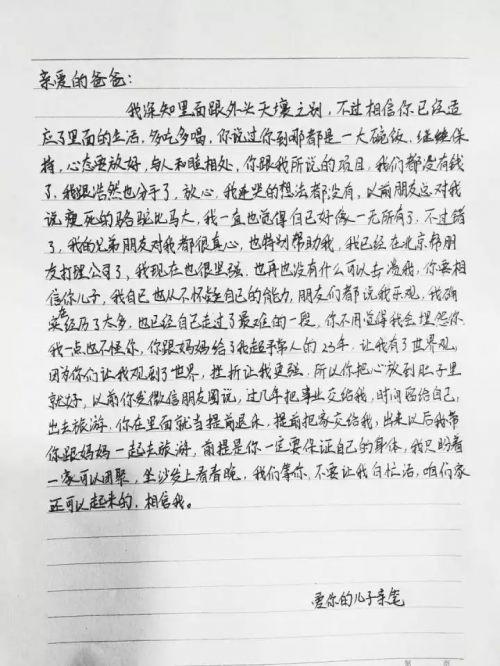 亲爱的爸爸：
我深知里面跟外头天壤之别，不过相信你已经适
应了里面的生活，多吃多喝，你说过你到哪都是一大碗饭，继续保
持，心态要放好，与人和睦相处，你跟我所说的项目，我们都没有钱
了，我跟浩然也分手了，放心，我连哭的想法都没有，以前朋友总对我
说瘦死的骆驼比马大，我一直也觉得自己好像一无所有了，不过错
了，我的兄弟朋友对我都很真心，也特别帮助我，我已经在北京帮朋
友打理公司了，我现在也很坚强，也再也没有什么可以击溃我，你要相
信你儿子，我自己也从不怀疑自己的能力，朋友们都说我乐观，我确
实在经历了太多，也已经自己走过了最难的一段，你不用觉得我会埋怨你
我一点也不怪你，你跟妈妈给了我超乎常人的23年，让我有了世界观，
因为你们让我观到了世界，挫折让我更强，所以你把心放到肚子里
就好，以前你发微信朋友圈说，过几年把事业交给我，时间留给自己，
出去旅游，你在里面就当提前退休，提前把家交给我，出来以后我带
你跟妈妈一起去旅游，前提是你一定要保证自己的身体，我只盼着
一家可以团聚，坐沙发上看春晚，我们等你，不要让我白忙活，咱们家
还可以起来的，相信我。
爱你的儿子亲笔